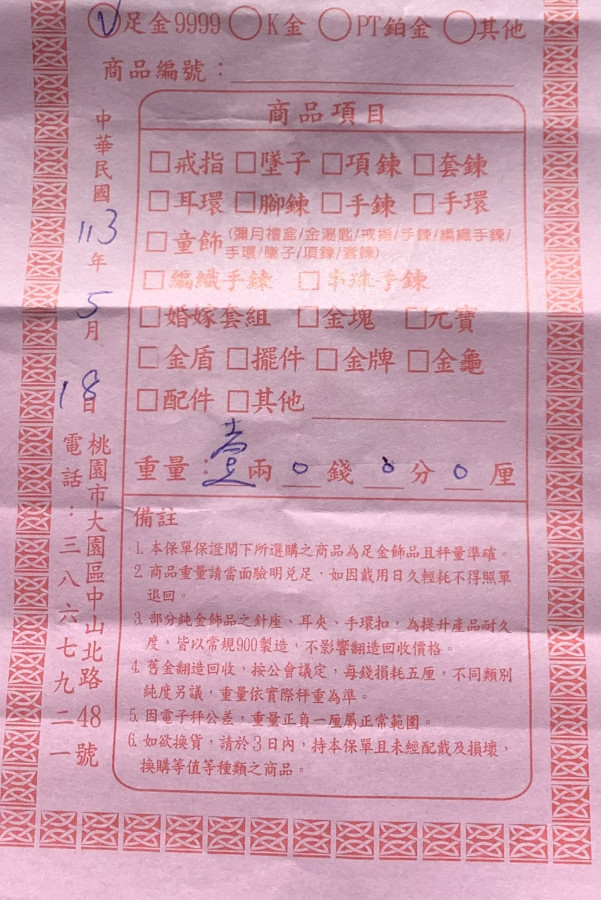 Ⓥ足金9999 ○K金 ○PT鉑金 ○其他
商品編號：
商品項目
□戒指 □墜子 □項鍊 □套鍊
□耳環 □腳鍊 □手鍊 □手環
□童飾(彌月禮盒/金湯匙/戒指/手鍊/編織手鍊/
手環/墜子/項鍊/套鍊)
□編織手鍊 □串珠手鍊
□婚嫁套組 □金塊 □元寶
□金盾 □擺件 □金牌 □金龜
□配件 □其他
重量：壹兩0錢0分0厘
備註
1. 本保單保證閣下所選購之商品為足金飾品且秤量準確。
2. 商品重量請當面驗明兌足，如因戴用日久輕耗不得照單
退回。
3. 部分純金飾品之針座、耳夾、手環扣，為提升產品耐久
度，皆以常規900製造，不影響翻造回收價格。
4. 舊金翻造回收，按公會議定，每錢損耗五厘，不同類別
純度另議，重量依實際秤重為準。
5. 因電子秤公差，重量正負一厘屬正常範圍。
6. 如欲換貨，請於3日內，持本保單且未經配戴及損壞，
換購等值等種類之商品。
中華民國113年5月18日
桃園市大園區中山北路48號
電話：三八六七九二一